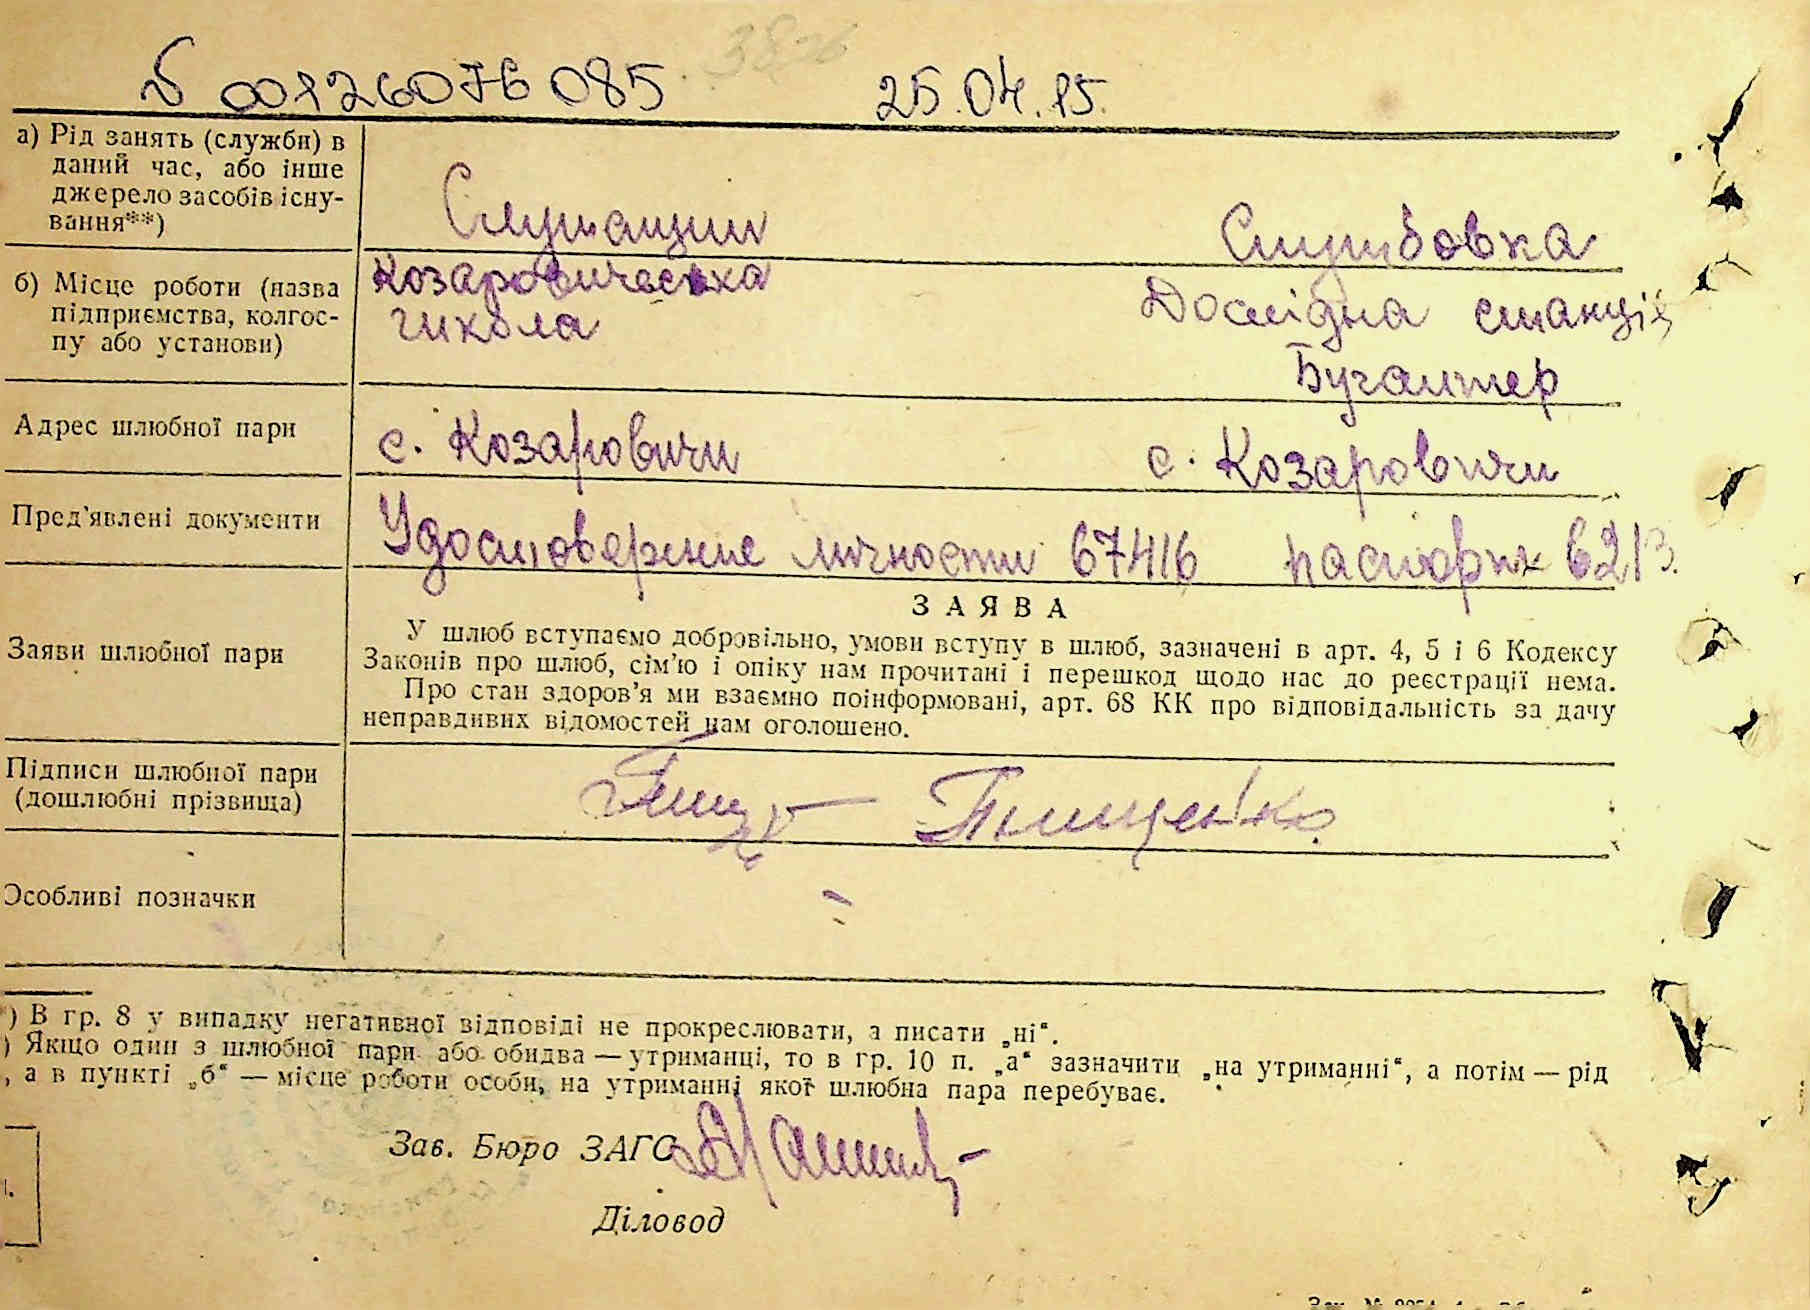 № 00126076085 25.04.15.
а) Рід занять (служби) в
даний час, або інше
джерело засобів існу-
вання**)
Служащий Службовка
б) Місце роботи (назва
підприємства, колгос-
пу або установи)
Козаровическа
школа
Дослідна станція
Бугалтер
Адрес шлюбної пари
с. Козаровичи с. Козаровичи
Пред'явлені документи
Удостоверение личности 67416 паспорт 6213.
ЗАЯВА
Заяви шлюбної пари
У шлюб вступаємо добровільно, умови вступу в шлюб, зазначені в арт. 4, 5 і 6 Кодексу
Законів про шлюб, сім'ю і опіку нам прочитані і перешкод щодо нас до реєстрації нема.
Про стан здоров'я ми взаємно поінформовані, арт. 68 КК про відповідальність за дачу
неправдивих відомостей нам оголошено.
Підписи шлюбної пари
(дошлюбні прізвища)
Тищенко
Особливі позначки
) В гр. 8 у випадку негативної відповіді не прокреслювати, а писати „ні“.
) Якщо один з шлюбної пари або обидва — утриманці, то в гр. 10 п. „а“ зазначити „на утриманні“, а потім — рід
, а в пункті „б“ — місце роботи особи, на утриманні якої шлюбна пара перебуває.
Зав. Бюро ЗАГС
Діловод